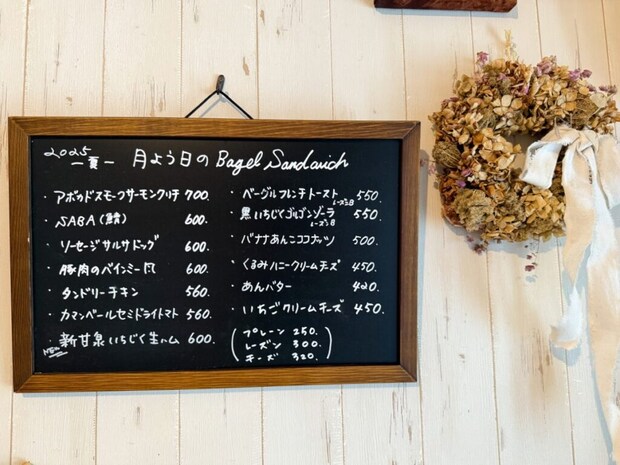 2025
ー夏ー 月よう日の Bagel Sandwich
・アボカドスモークサーモンクリチ 700.
・SABA (鯖) 600.
・ソーセージサルサドッグ 600.
・豚肉のバインミー風 600.
・タンドリーチキン 560.
・カマンベールセミドライトマト 560.
NEW 新甘泉いちじく生ハム 600.
・ベーグルフレンチトースト 550.
レーズンB
・黒いちじくゴルゴンゾーラ 550.
レーズンB
・バナナあんこココナッツ 500.
・くるみハニークリームチーズ 450.
・あんバター 400.
・いちごクリームチーズ 450.
(プレーン 250.
レーズン 300.
チーズ 320.)